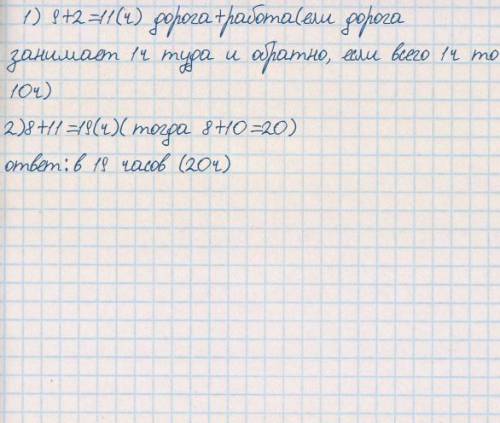 1) 9+2=11(ч) дорога+работа(ели дорога
занимает 1ч туда и обратно, если всего 1ч то
10ч)
2)8+11=19(ч)(тогда 8+10=20)
ответ: в 19 часов (20ч)